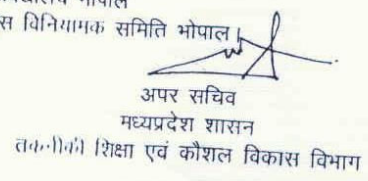 भोपाल
स विनियामक समिति भोपाल।
अपर सचिव
मध्यप्रदेश शासन
तकनीकी शिक्षा एवं कौशल विकास विभाग